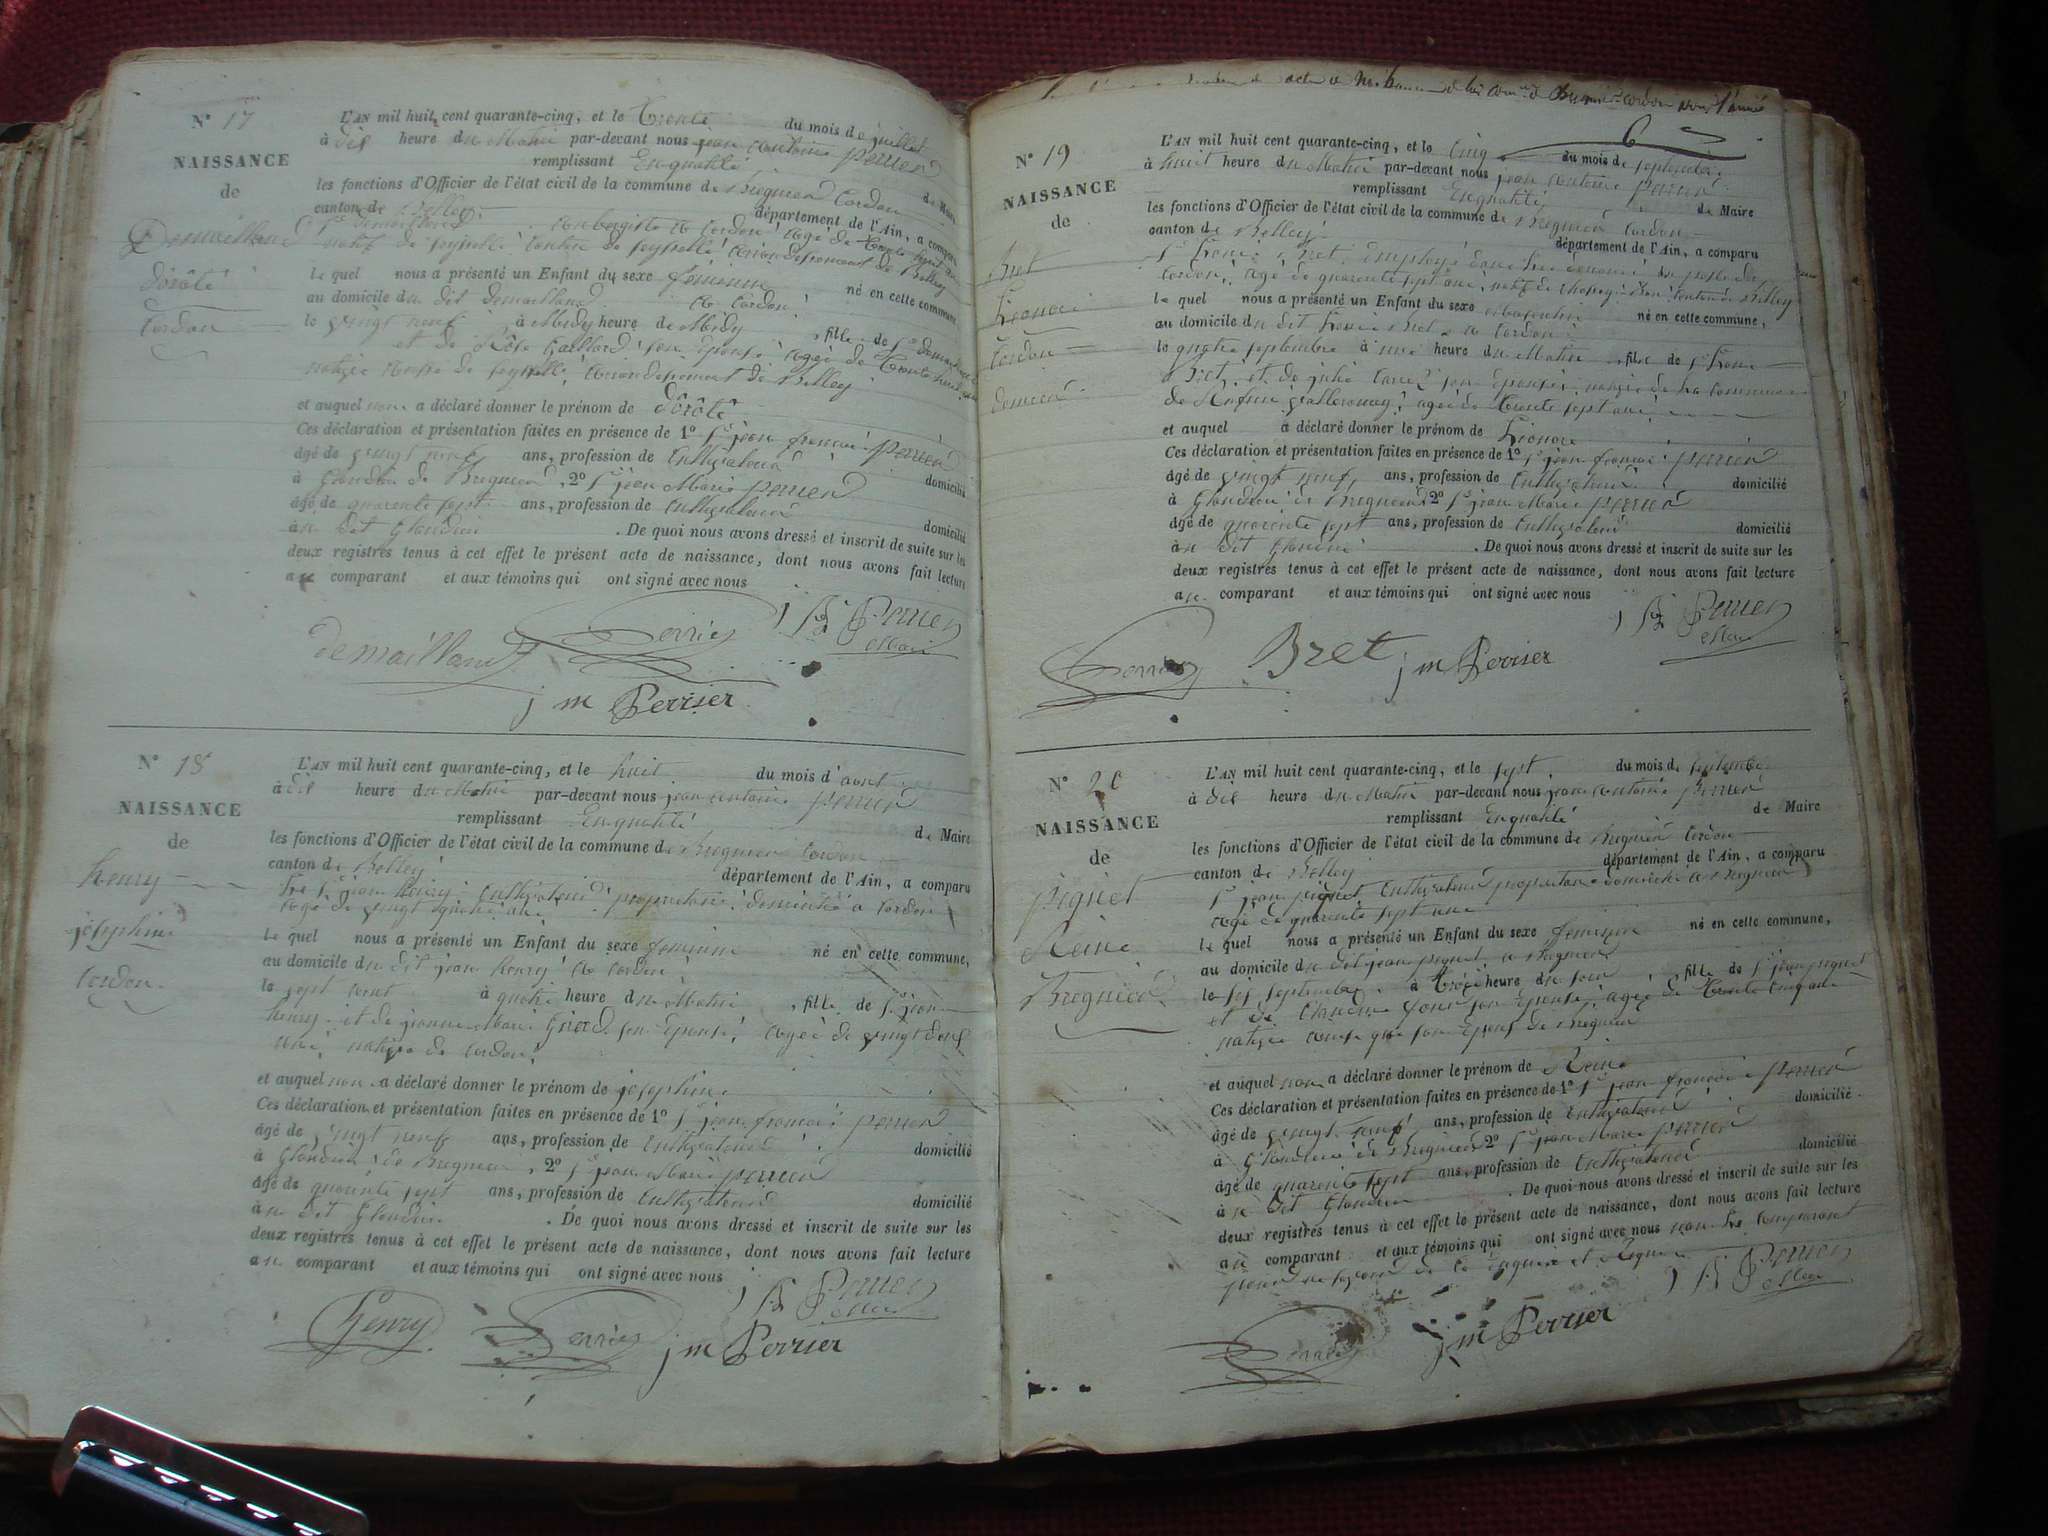 N° 17
NAISSANCE
de
Demailland
dôrôté
Cordon
L'AN mil huit cent quarante-cinq, et le trente du mois de juillet
à dix heure du Matin par-devant nous jean Antoine perrier
remplissant En qualité de Maire
les fonctions d'Officier de l'état civil de la commune de Bregnier Cordon
canton de Belley département de l'Ain, a comparu
Sr Demailland aubergiste à Cordon agé de trente huit ans
natif de seysselle Canton de seysselle arrondissement de Belley
le quel nous a présenté un Enfant du sexe feminin né en cette commune
au domicile du dit demailland à Cordon
le vingt neuf à Midy heure de Midy, fille de Sr demailland
et de Gaillard son Epouse agée de trente
native de seysselle arrondissement de Belley
et auquel nous a déclaré donner le prénom de dôrôté
Ces déclaration et présentation faites en présence de 1° Sr jean francois perrier
âgé de vingt neuf ans, profession de Cultivateur domicilié
à Glandieu de Bregnier, 2° Sr jean Marie perrier
âgé de quarente sept ans, profession de Cultivateur domicilié
àu dit Glandieu. De quoi nous avons dressé et inscrit de suite sur les
deux registres tenus à cet effet le présent acte de naissance, dont nous avons fait lecture
au comparant et aux témoins qui ont signé avec nous
demailland Perrier Perrier Maire
j m Perrier
N° 18
NAISSANCE
de
henry
josephine
Cordon
L'AN mil huit cent quarante-cinq, et le huit du mois d'aout
à dix heure du Matin par-devant nous jean antoine perrier
remplissant En qualité de Maire
les fonctions d'Officier de l'état civil de la commune de Bregnier Cordon
canton de Belley département de l'Ain, a comparu
Sr jean henry Cultivateur propriétaire domicilié a Cordon
agé de vingt quatre ans
le quel nous a présenté un Enfant du sexe feminin né en cette commune,
au domicile du dit jean henry à Cordon
le sept aout à quatre heure du Matin, fille de Sr jean
henry et de jeanne Marie son Epouse, agée de vingt deux
ans, native de Cordon
et auquel nous a déclaré donner le prénom de josephine
Ces déclaration et présentation faites en présence de 1° Sr jean francois perrier
âgé de vingt neuf ans, profession de Cultivateur domicilié
à Glandieu de Bregnier, 2° Sr jean Marie perrier
âgé de quarente sept ans, profession de Cultivateur domicilié
àu dit Glandieu. De quoi nous avons dressé et inscrit de suite sur les
deux registres tenus à cet effet le présent acte de naissance, dont nous avons fait lecture
au comparant et aux témoins qui ont signé avec nous
Henry Perrier j m Perrier Perrier Maire
acte de Naissance de la Comne de Bregnier Cordon pour l'année
6
N° 19
NAISSANCE
de
Bret
Cordon
L'AN mil huit cent quarante-cinq, et le Cinq du mois de septembre
à huit heure du Matin par-devant nous jean Antoine perrier
remplissant En qualité de Maire
les fonctions d'Officier de l'état civil de la commune de Bregnier Cordon
canton de Belley département de l'Ain, a comparu
Sr Bret Employé dans les douanes du poste de
Cordon, agé de quarente sept ans, natif de Canton de Belley
le quel nous a présenté un Enfant du sexe Masculin né en cette commune,
au domicile du dit Bret a Cordon
le quatre septembre à une heure du Matin, fils de Sr
Bret et de julie son Epouse native de la Commune
de agée de trente sept ans
et auquel a déclaré donner le prénom de
Ces déclaration et présentation faites en présence de 1° Sr jean francois perrier
âgé de vingt neuf ans, profession de Cultivateur domicilié
à Glandieu de Bregnier 2° Sr jean Marie perrier
âgé de quarente sept ans, profession de Cultivateur domicilié
àu dit Glandieu. De quoi nous avons dressé et inscrit de suite sur les
deux registres tenus à cet effet le présent acte de naissance, dont nous avons fait lecture
au comparant et aux témoins qui ont signé avec nous
Perrier Bret j m Perrier Perrier Maire
N° 20
NAISSANCE
de
piquet
Reine
Bregnier
L'AN mil huit cent quarante-cinq, et le sept du mois de septembre
à dix heure du Matin par-devant nous jean Antoine perrier
remplissant En qualité de Maire
les fonctions d'Officier de l'état civil de la commune de Bregnier Cordon
canton de Belley département de l'Ain, a comparu
Sr jean piquet Cultivateur propriétaire domicilié a Bregnier
agé de quarente sept ans
le quel nous a présenté un Enfant du sexe feminin né en cette commune,
au domicile du dit jean piquet a Bregnier
le six septembre à trois heure du soir, fille de Sr jean piquet
et de Claudine son Epouse, agée de trente Cinq ans
native ainsi que son Epoux de Bregnier
et auquel nous a déclaré donner le prénom de Reine
Ces déclaration et présentation faites en présence de 1° Sr jean francois perrier
âgé de vingt neuf ans, profession de Cultivateur domicilié
à Glandieu de Bregnier 2° Sr jean Marie perrier
âgé de quarente sept ans, profession de Cultivateur domicilié
àu dit Glandieu. De quoi nous avons dressé et inscrit de suite sur les
deux registres tenus à cet effet le présent acte de naissance, dont nous avons fait lecture
au comparant et aux témoins qui ont signé avec nous non le Comparant
pour ne savoir de ce enquis et Requis
Perrier j m Perrier Perrier Maire